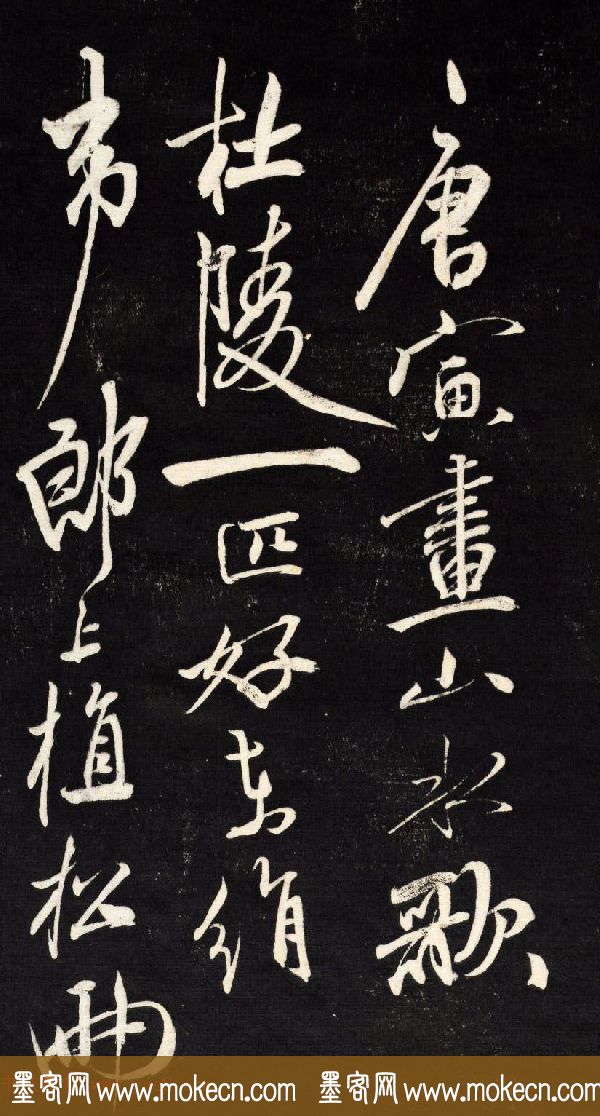 唐寅畫山水歌
杜陵一匹好東絹
韋郎上植松兩
墨客网 www.mokecn.com 墨客网 www.mokecn.com